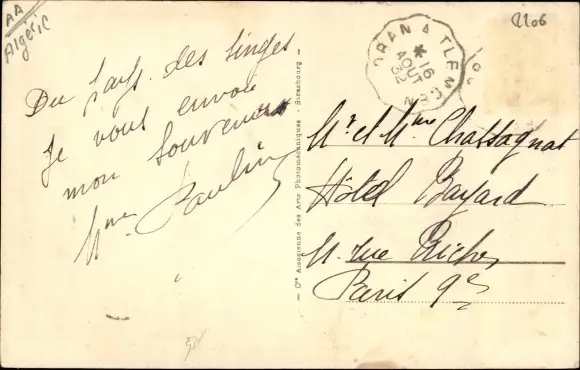 AA
Algérie
2206
ORAN A TLEMCEN
*
16
AOUT
32
Du pays des singes
Je vous envoie
mon souvenir
Mme Paulin
— Cie Alsacienne des Arts Photomécaniques - Strasbourg —
Mr et Mme Chassagnat
Hôtel Bayard
rue Richer
Paris 9e